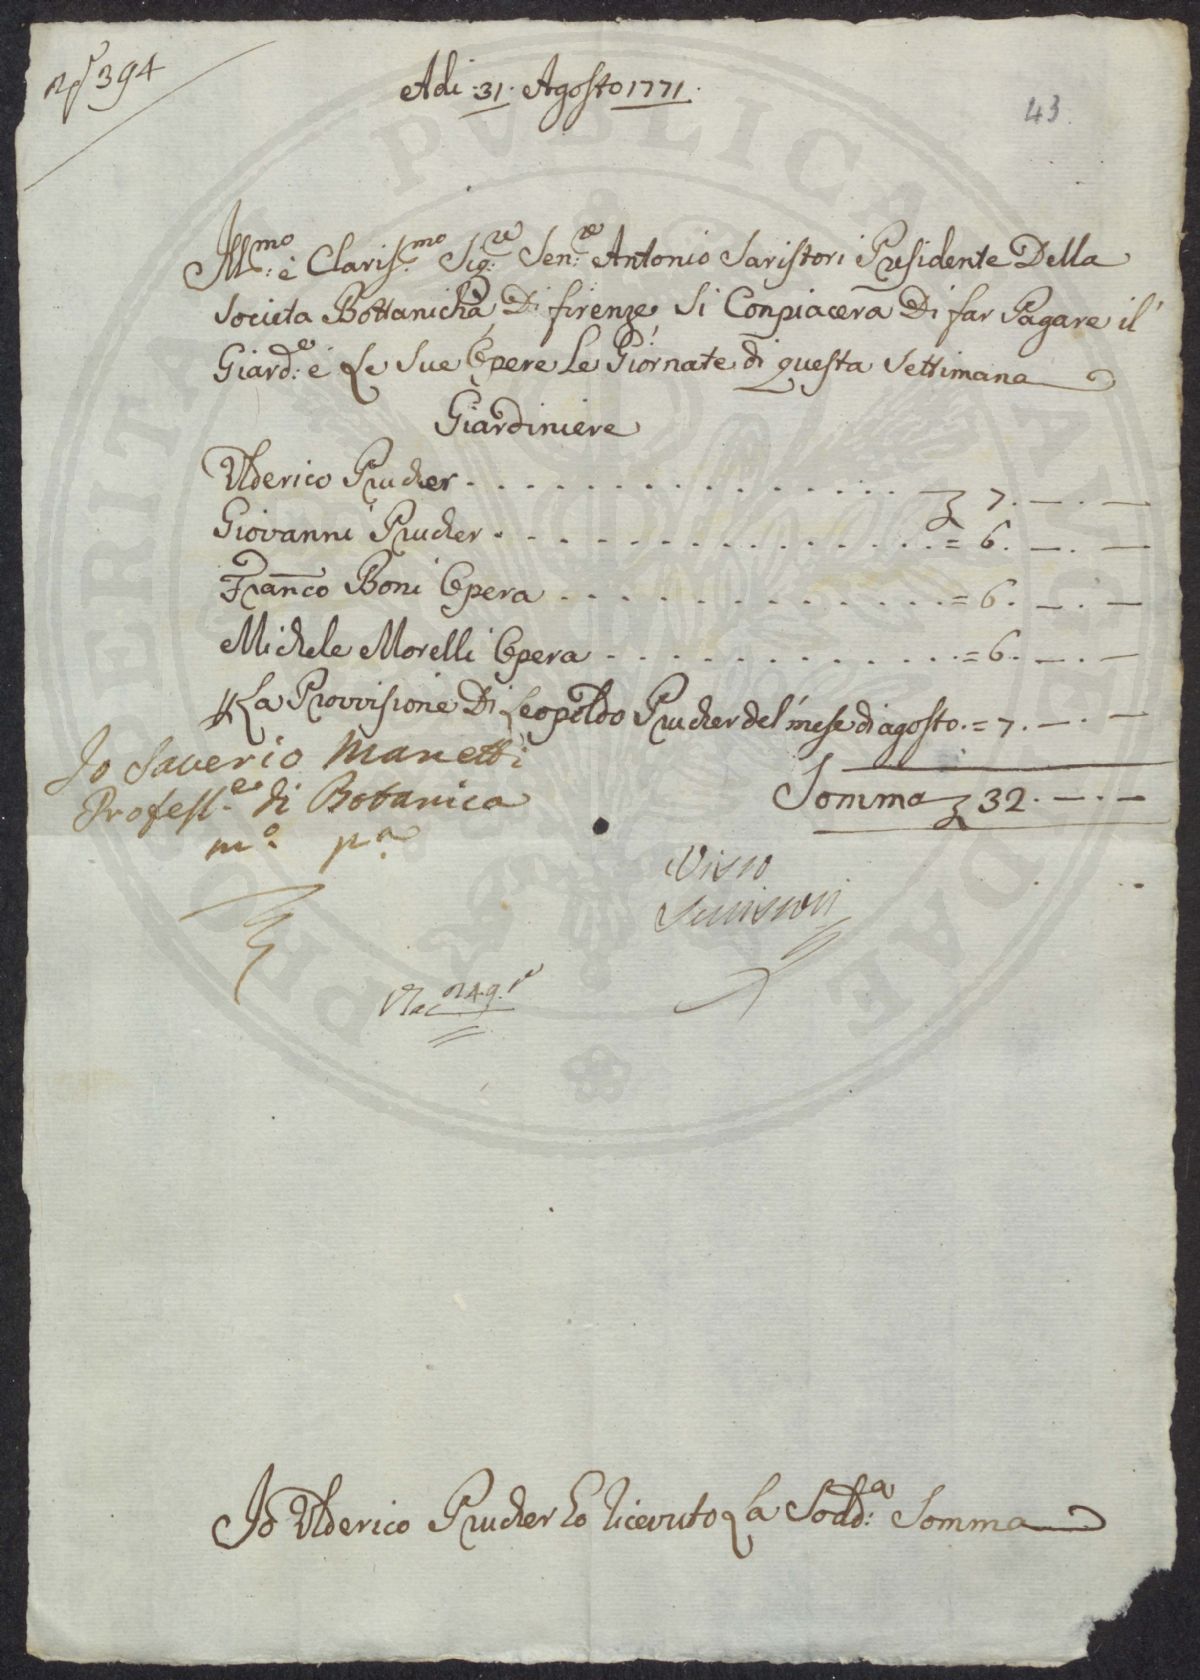 nº 394
Adi 31. Agosto 1771.
43
Ill.mo é Claris.mo Sig.re Sen.re Antonio Saristori Presidente Della
Societa Bottanicha Di firenze Si Conpiacera Di far Pagare il'
Giard.e é Le Sue Opere Le Giornate di questa Settimana
Giardiniere
Ulderico Prucher 7. — . —
Giovanni Prucher = 6. — . —
Franco Boni Opera = 6. — . —
Michele Morelli Opera = 6. — . —
La Provvisione Di Leopoldo Prucher del' mese di agosto = 7. — . —
Somma 32. — . —
Io Saverio Manetti
Profess.e di Botanica
m.o p.a
Visto
Io Ulderico Prucher Ho Ricevuto La Sodd.a Somma